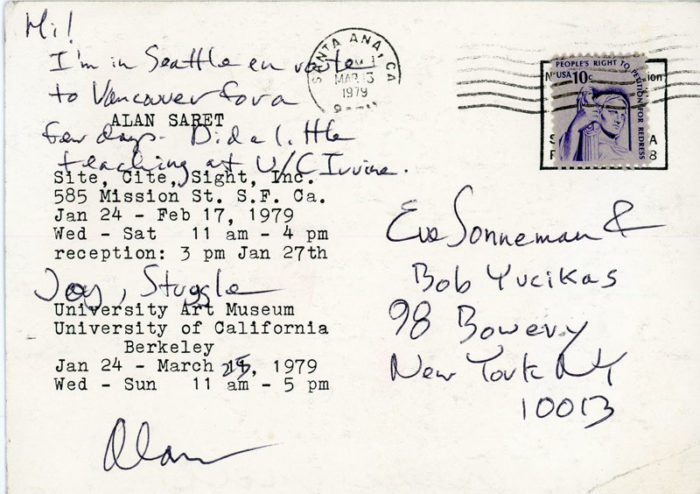 Hi!
I'm in Seattle en route
to Vancouver for a
ALAN SARET
few days. Did a little
teaching at U/C Irvine.
Site, Cite, Sight, Inc.
585 Mission St. S.F. Ca.
Jan 24 - Feb 17, 1979
Wed - Sat 11 am - 4 pm
reception: 3 pm Jan 27th
Joy, Stuggle
University Art Museum
University of California
Berkeley
Jan 24 - March 25, 1979
Wed - Sun 11 am - 5 pm
Alan
SANTA ANA, CA
MAR 13
1979
PEOPLE'S RIGHT TO PETITION FOR REDRESS
USA 10c
Eve Sonneman &
Bob Yucikas
98 Bowery
New York NY
10013